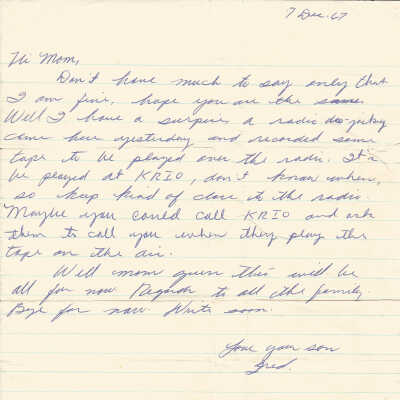 7 Dec. 67
Hi Mom,
Don't have much to say only that
I am fine, hope you are the same.
Well I have a surpires a radio dee-jockey
came here yesterday and recorded some
tape to be played over the radio. It'll
be played at KRIO, don't know when,
so keep kind of close to the radio.
Maybe you could call KRIO and ask
them to call you when they play the
tape on the air.
Well mom guess this will be
all for now Regards to all the family.
Bye for now. Write soon.
Love your son
Fred.